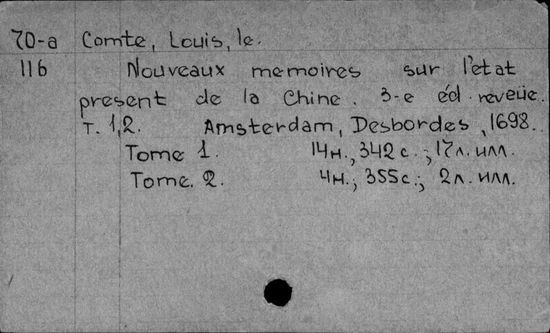 70-a Comte, Louis, le.
116 Nouveaux memoires sur l'etat
present de la Chine. 3-e éd. reveüe.
T. 1,2. Amsterdam, Desbordes, 1698.
Tome 1. 14н., 342 с.; 17л. илл.
Tome. 2. 4н.; 355с.; 2л. илл.